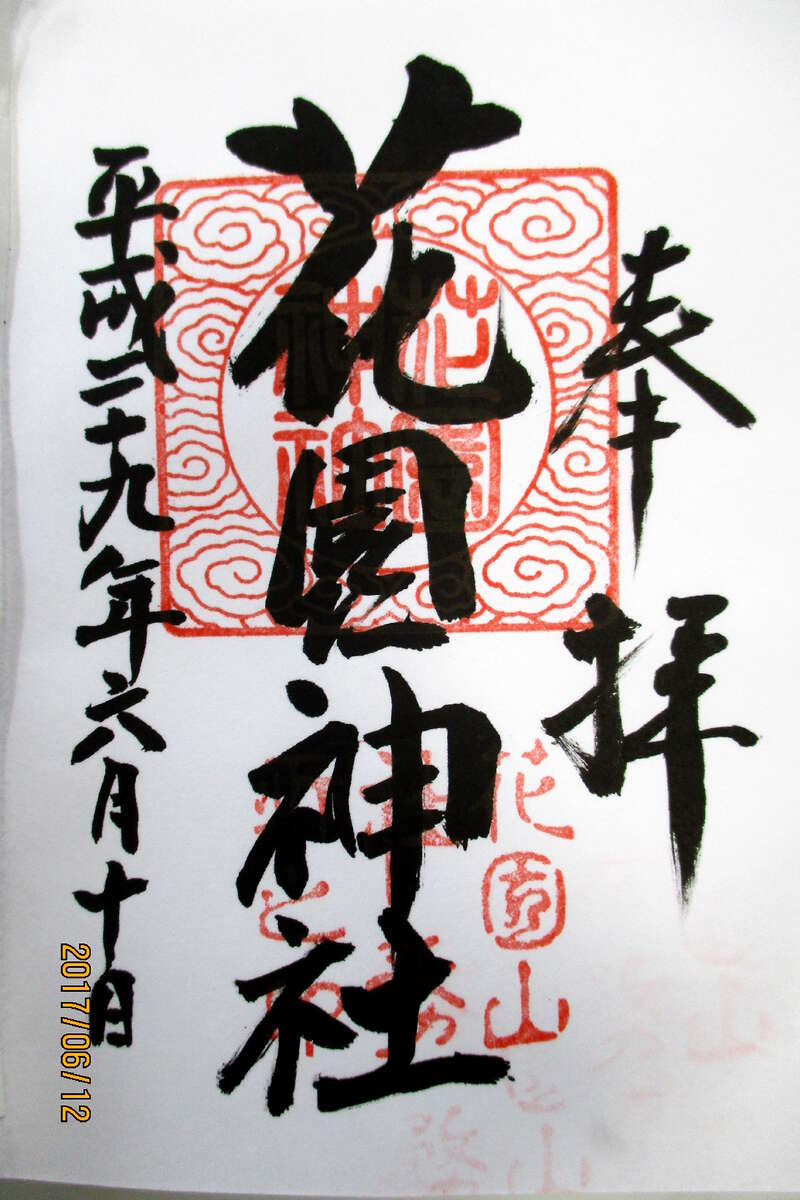 奉拝
花園神社
花園
神社
花園山
平成二十九年六月十日
2017/06/12